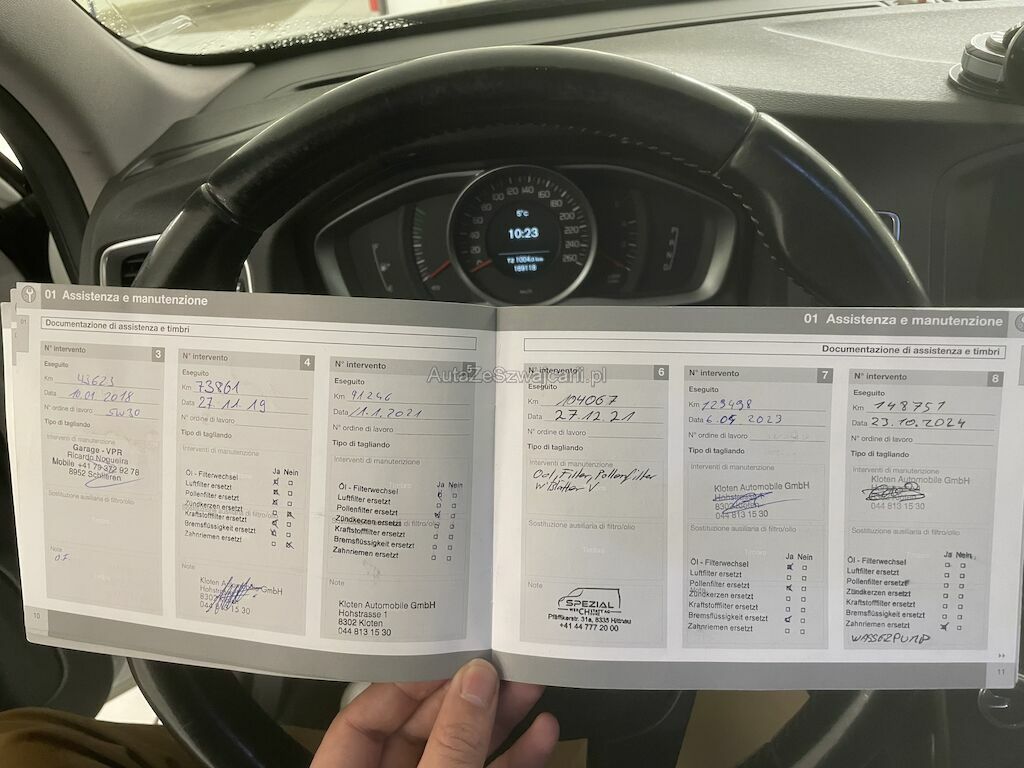 20 40 60 80 100 120 140 160 180 200 220 240 260
5°c
10:23
189118
01 Assistenza e manutenzione
Documentazione di assistenza e timbri
N° intervento 3
Eseguito
Km 43623
Data 10.01 2018
N° ordine di lavoro 5W30
Tipo di tagliando
Interventi di manutenzione
Garage - VPR
Ricardo Nogueira
Mobile +41 79 372 92 78
8952 Schlieren
Sostituzione ausiliaria di filtro/olio
Note
N° intervento 4
Eseguito
Km 73861
Data 27.11.19
N° ordine di lavoro
Tipo di tagliando
Interventi di manutenzione
Ja Nein
Öl - Filterwechsel
Luftfilter ersetzt
Pollenfilter ersetzt
Zündkerzen ersetzt
Kraftstofffilter ersetzt
Bremsflüssigkeit ersetzt
Zahnriemen ersetzt
Note
Kloten Automobile GmbH
Hohstrasse 1
8302 Kloten
044 813 15 30
10
N° intervento 5
Eseguito
Km 91246
Data 11.1.2021
N° ordine di lavoro
Tipo di tagliando
Interventi di manutenzione
Ja Nein
Öl - Filterwechsel
Luftfilter ersetzt
Pollenfilter ersetzt
Zündkerzen ersetzt
Kraftstofffilter ersetzt
Bremsflüssigkeit ersetzt
Zahnriemen ersetzt
Note
Kloten Automobile GmbH
Hohstrasse 1
8302 Kloten
044 813 15 30
AutaZeSzwajcarii.pl
01 Assistenza e manutenzione
Documentazione di assistenza e timbri
N° intervento 6
Eseguito
Km 104067
Data 27.12.21
N° ordine di lavoro
Tipo di tagliando
Interventi di manutenzione
Oel, Filter, Pollenfilter
W Blätter V
Sostituzione ausiliaria di filtro/olio
Timbro
Note
SPEZIAL
Pfäffikerstr. 31a, 8335 Hittnau
+41 44 777 20 00
N° intervento 7
Eseguito
Km 129498
Data 6.09 2023
N° ordine di lavoro
Tipo di tagliando
Interventi di manutenzione
Kloten Automobile GmbH
Hohstrasse 1
8302 Kloten
044 813 15 30
Sostituzione ausiliaria di filtro/olio
Ja Nein
Öl - Filterwechsel
Luftfilter ersetzt
Pollenfilter ersetzt
Zündkerzen ersetzt
Kraftstofffilter ersetzt
Bremsflüssigkeit ersetzt
Zahnriemen ersetzt
N° intervento 8
Eseguito
Km 148751
Data 23.10.2024
N° ordine di lavoro
Tipo di tagliando
Interventi di manutenzione
Kloten Automobile GmbH
044 813 15 30
Sostituzione ausiliaria di filtro/olio
Ja Nein
Öl - Filterwechsel
Luftfilter ersetzt
Pollenfilter ersetzt
Zündkerzen ersetzt
Kraftstofffilter ersetzt
Bremsflüssigkeit ersetzt
Zahnriemen ersetzt
WASSERPUMP
11